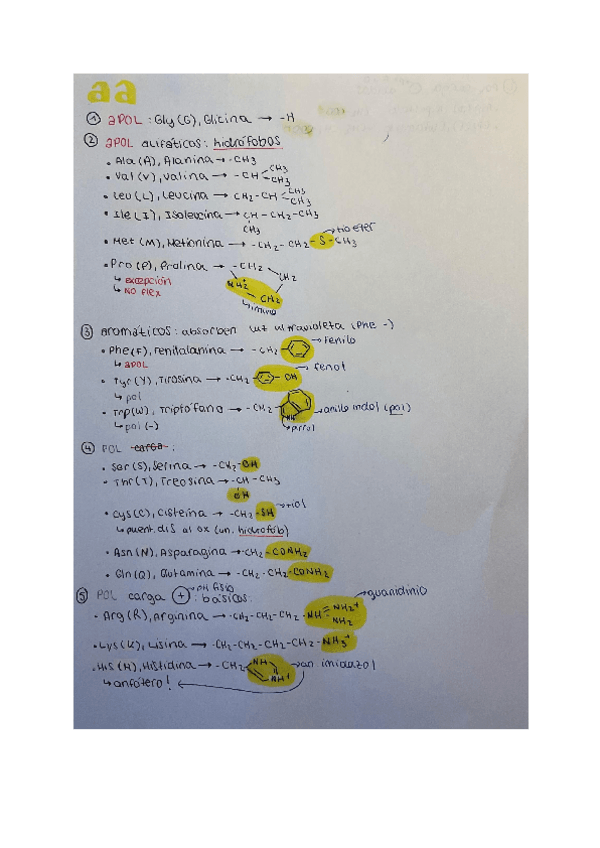 aa
① apol : Gly (G), Glicina → -H
② apol alifáticos : hidrófobos
• Ala (A), Alanina → -CH3
• Val (V), Valina → -CH CH3 CH3
• Leu (L), Leucina → CH2-CH CH3 CH3
• Ile (I), Isoleucina → CH - CH2-CH3
CH3
tioeter
• Met (M), Metionina → -CH2- CH2-S-CH3
• Pro (P), Prolina → -CH2
↳ excepción CH2
↳ no flex NH2+ - CH2
↳ imino
③ Aromáticos : absorben luz ultravioleta (Phe -)
• Phe (F), Fenilalanina → -CH2 → Fenilo
↳ apol
→ fenol
• Tyr (Y), Tirosina → -CH2 - OH
↳ pol
• Trp (W), Triptófano → -CH2 → anillo indol (pol)
↳ pol (-) NH ↳ pirrol
④ POL carga :
• Ser (S), Serina → -CH2-OH
• Thr (T), Treosina → -CH - CH3
OH
• Cys (C), Cisteina → -CH2-SH → tiol
↳ puent. dis al ox (un. hidrófob)
• Asn (N), Asparagina → -CH2-CONH2
• Gln (Q), Glutamina → -CH2-CH2-CONH2
→ pH fisio
⑤ POL carga + : básicos:
→ guanidinio
• Arg (R), Arginina → -CH2-CH2-CH2-NH = NH2+
NH2
• Lys (K), Lisina → -CH2-CH2-CH2-CH2-NH3+
• His (H), Histidina → -CH2 NH NH+ → an. imidazol
↳ anfótero!